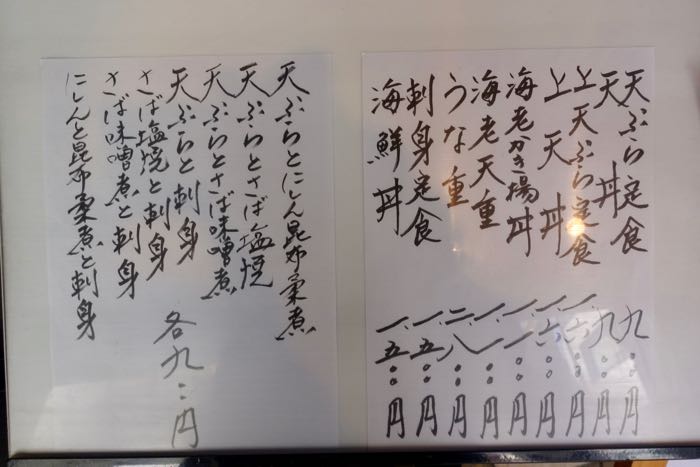 天ぷら定食 九〇〇円
天丼 九〇〇円
上天ぷら定食 一、六〇〇円
上天丼 一、六〇〇円
海老かき揚丼 一、一〇〇円
海老天重 一、一〇〇円
うな重 二、八〇〇円
刺身定食 一、五〇〇円
海鮮丼 一、五〇〇円
天ぷらとにしん昆布柔煮
天ぷらとさば塩焼
天ぷらとさば味噌煮
天ぷらと刺身
さば塩焼と刺身
さば味噌煮と刺身
にしんと昆布柔煮と刺身
各九〇〇円